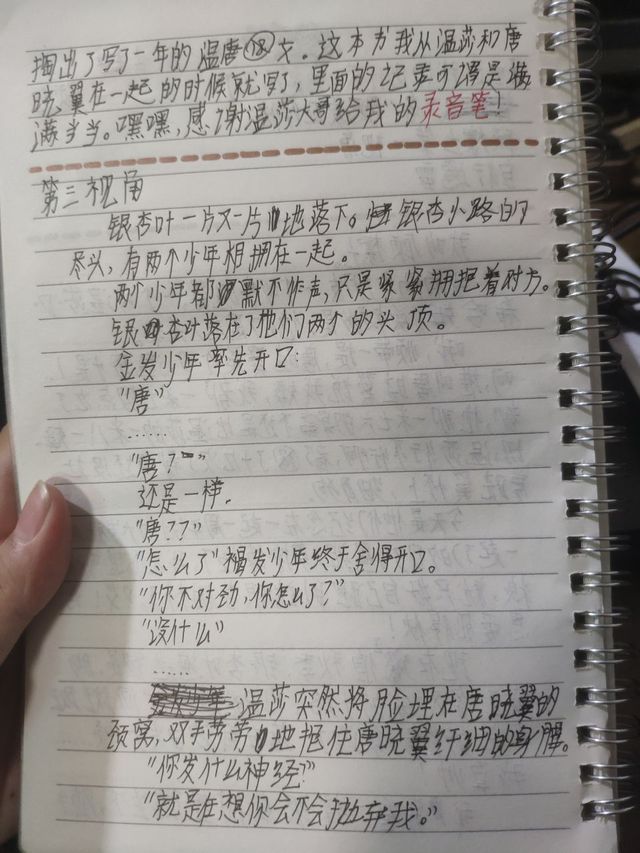 掏出了写了一年的温唐⑱文。这本书我从温莎和唐
晓翼在一起的时候就写了,里面的记录可谓是满
满当当。嘿嘿,感谢温莎大哥给我的录音笔!
第三视角
银杏叶一片又一片地落下。银杏小路的
尽头,有两个少年相拥在一起。
两个少年都默不作声,只是紧紧拥抱着对方。
银杏叶落在了他们两个的头顶。
金发少年率先开口:
“唐”
……
“唐?”
还是一样。
“唐??”
“怎么了”褐发少年终于舍得开口。
“你不对劲,你怎么了?”
“没什么”
……
温莎突然将脸埋在唐晓翼的
颈窝,双手劳劳地抱住唐晓翼纤细的身脾。
“你发什么神经?”
“就是在想你会不会抛弃我。”